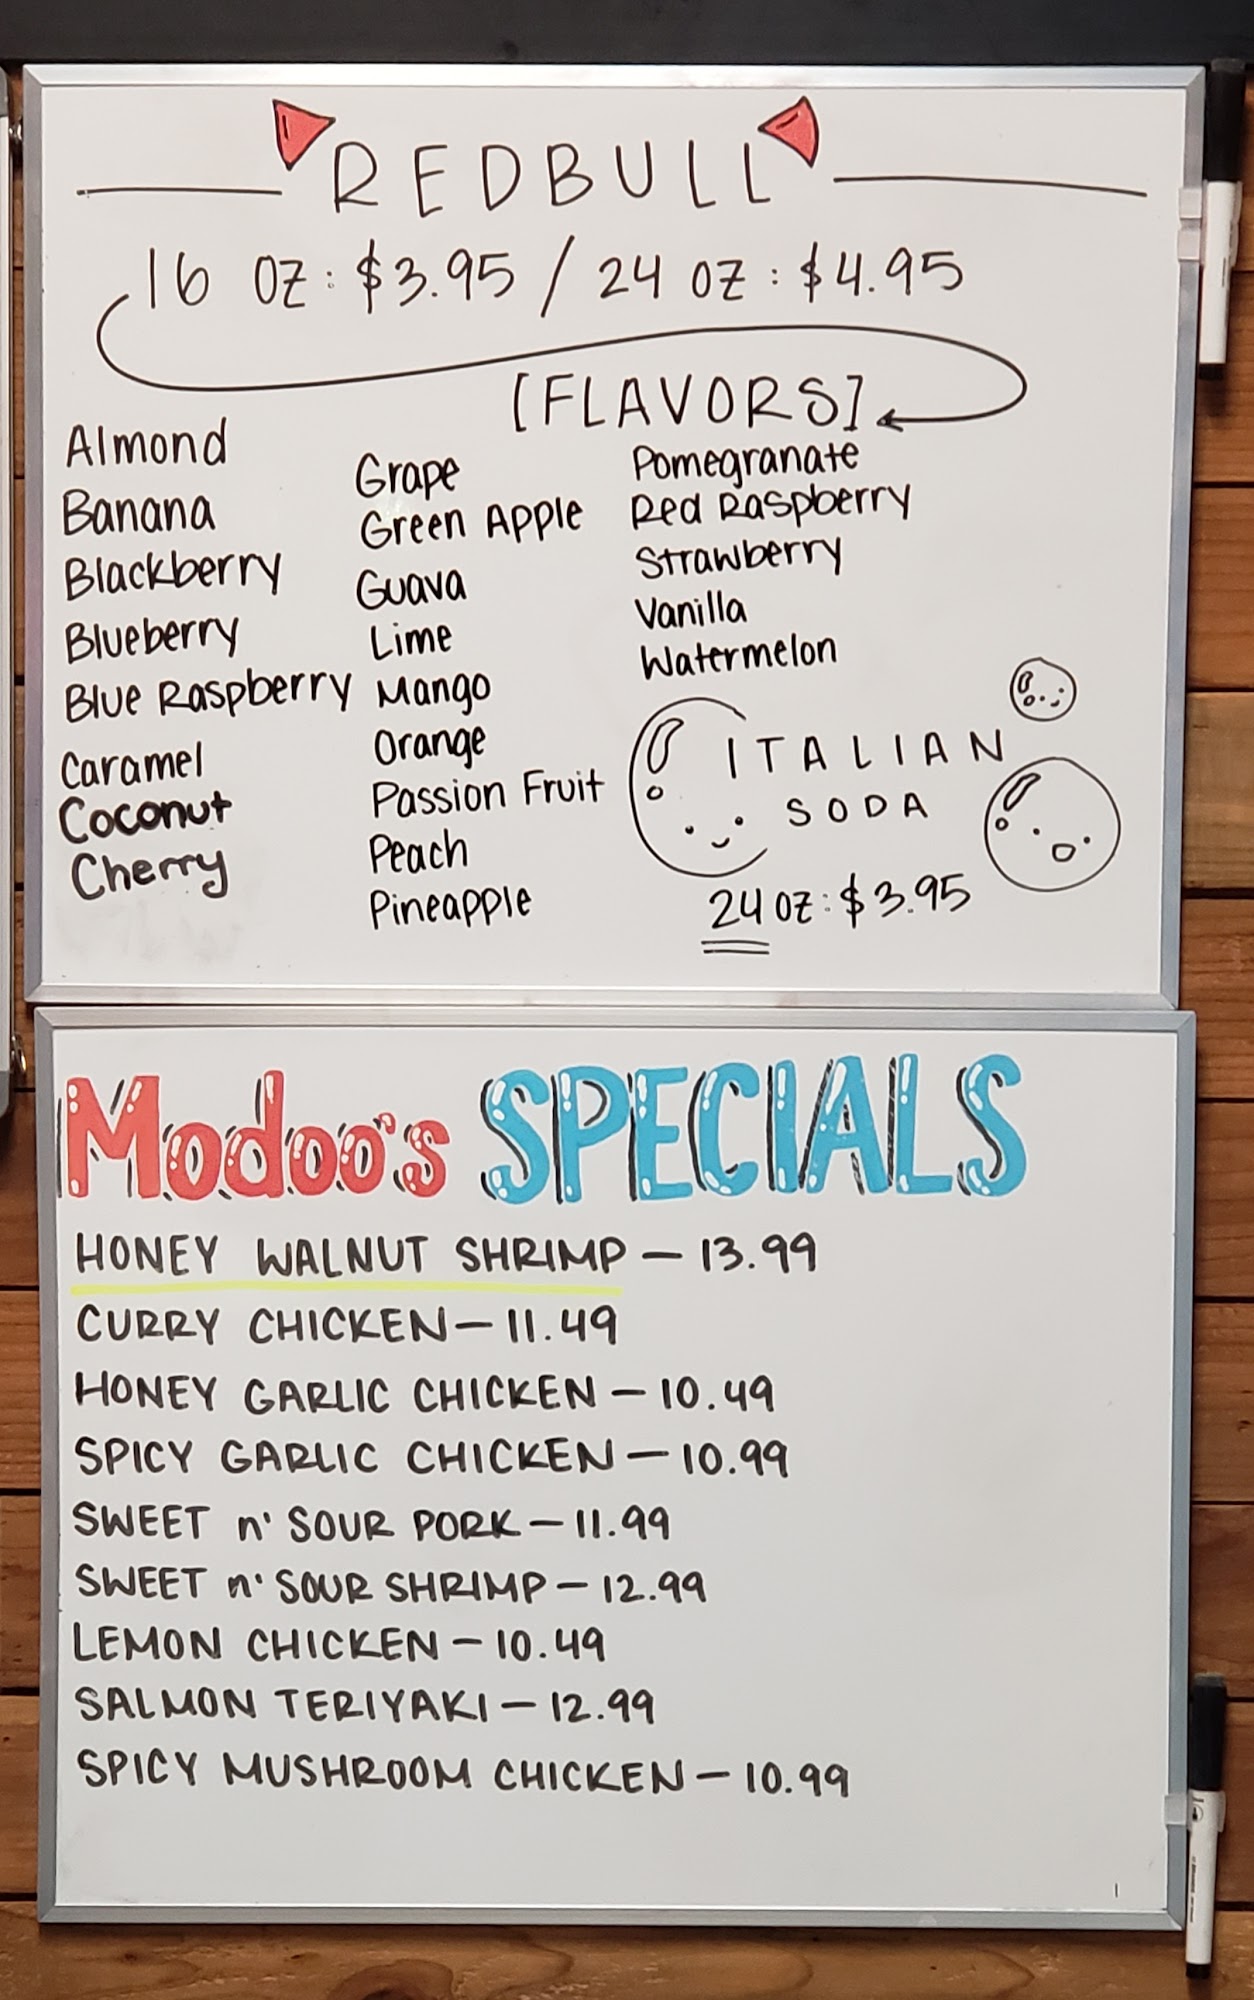 REDBULL
16 OZ: $3.95 / 24 OZ: $4.95
[FLAVORS]
Almond
Banana
Blackberry
Blueberry
Blue Raspberry
Caramel
Coconut
Cherry
Grape
Green Apple
Guava
Lime
Mango
Orange
Passion Fruit
Peach
Pineapple
Pomegranate
Red Raspberry
Strawberry
Vanilla
Watermelon
ITALIAN
SODA
24 OZ: $3.95
Modoo's SPECIALS
HONEY WALNUT SHRIMP — 13.99
CURRY CHICKEN — 11.49
HONEY GARLIC CHICKEN — 10.49
SPICY GARLIC CHICKEN — 10.99
SWEET n' SOUR PORK — 11.99
SWEET n' SOUR SHRIMP — 12.99
LEMON CHICKEN — 10.49
SALMON TERIYAKI — 12.99
SPICY MUSHROOM CHICKEN — 10.99